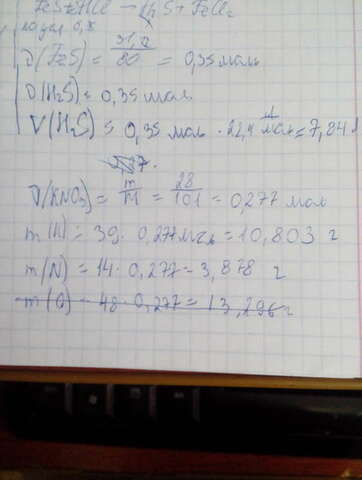 FeS + HCl → H₂S + FeCl₂
ν(FeS) = 31,2/88 = 0,35 моль
ν(H₂S) = 0,35 моль
V(H₂S) = 0,35 моль · 22,4 л/моль = 7,84 л
ν(KNO₃) = m/M = 28/101 = 0,277 моль
m(K) = 39 · 0,277 моль = 10,803 г
m(N) = 14 · 0,277 = 3,878 г
m(O) = 48 · 0,277 = 13,296 г